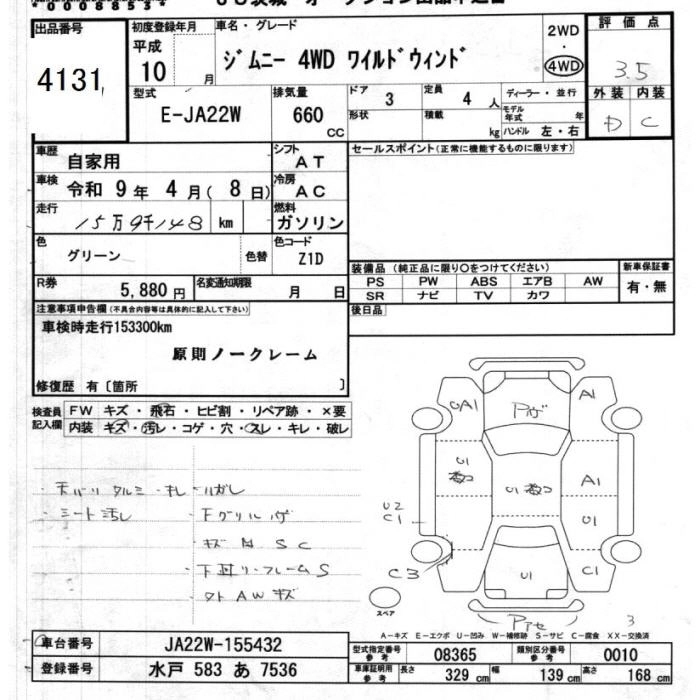 *00088534*
出品番号 初度登録年月 車名・グレード 2WD・4WD 評価点
4131 平成10月 ジムニー 4WD ワイルドウィンド 3.5
型式 排気量 ドア 3 定員 4人 ディーラー・並行 外装 内装
E-JA22W 660CC 形状 積載 kg モデル年式 年 ハンドル 左・右 D C
車歴 自家用 シフト AT セールスポイント(正常に機能するものに限ります)
車検 令和 9年 4月( 8日) 冷房 AC
走行 15万9千148 km 燃料 ガソリン
色 グリーン 色替 色コード Z1D
装備品 (純正品に限り〇をつけてください) 新車保証書
PS PW ABS エアB AW 有・無
SR ナビ TV カワ
R券 5,880円 名変通知期限 月 日
後日品
注意事項申告欄(不具合内容等は具体的に記入して下さい)
車検時走行153300km
原則ノークレーム
修復歴 有〔箇所 〕
検査員記入欄 FW キズ・飛石・ヒビ割・リペア跡・×要
内装 キズ・汚レ・コゲ・穴・スレ・キレ・破レ
・天バリ タルミ・キレ・ハガレ
・シート汚レ
・下グリル
・キズ S C
・下廻リ・フレームS
・タト AW キズ
A1
U1
A1
U1
U1
U2
C1
C3
C1
U1
スペア
3
A-キズ E-エクボ U-凹み W-補修跡 S-サビ C-腐食 XX-交換済
車台番号 JA22W-155432
登録番号 水戸 583 あ 7536
型式指定番号 参考 08365 類別区分番号 参考 0010
車庫証明用 参考 長さ 329 cm 幅 139 cm 高さ 168 cm